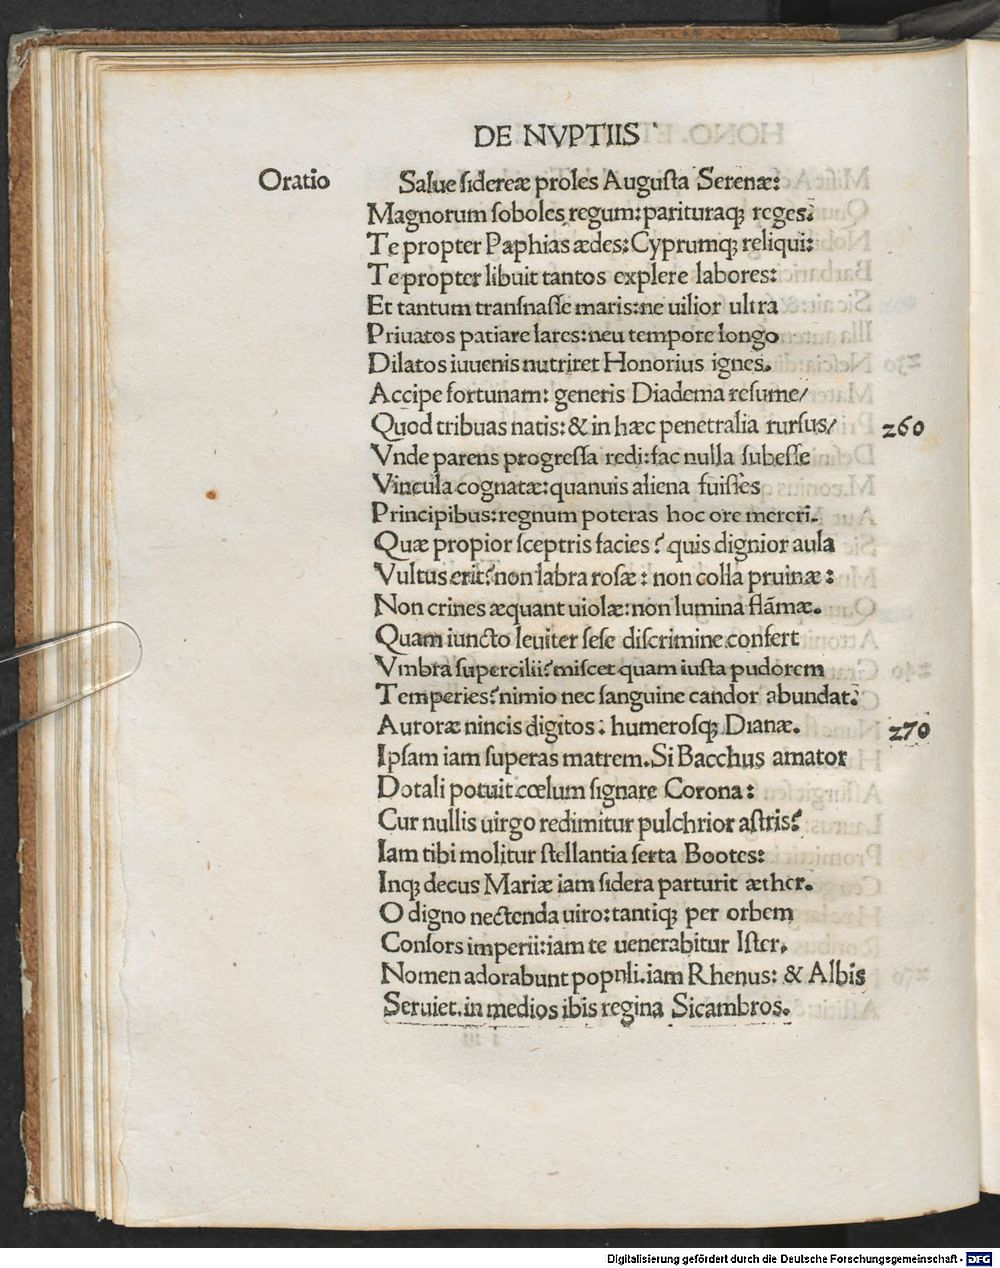 DE NVPTIIS
Oratio Salue ſidereæ proles Auguſta Serenæ:
Magnorum ſoboles regum: parituraqꝫ reges.
Te propter Paphias ædes: Cyprumqꝫ reliqui:
Te propter libuit tantos explere labores:
Et tantum tranſnaſſe maris: ne uilior ultra
Priuatos patiare lares: neu tempore longo
Dilatos iuuenis nutriret Honorius ignes.
Accipe fortunam: generis Diadema reſume/
Quod tribuas natis: & in hæc penetralia rurſus/ 260
Vnde parens progreſſa redi: fac nulla ſubeſſe
Vincula cognatæ: quanuis aliena fuiſſes
Principibus: regnum poteras hoc ore mereri.
Quæ propior ſceptris facies? quis dignior aula
Vultus erit? non labra roſæ: non colla pruinæ:
Non crines æquant uiolæ: non lumina flãmæ.
Quam iuncto leuiter ſeſe diſcrimine confert
Vmbra ſupercilii? miſcet quam iuſta pudorem
Temperies? nimio nec ſanguine candor abundat.
Auroræ nincis digitos: humeroſqꝫ Dianæ. 270
Ipſam iam ſuperas matrem. Si Bacchus amator
Dotali potuit cœlum ſignare Corona:
Cur nullis uirgo redimitur pulchrior aſtris?
Iam tibi molitur ſtellantia ſerta Bootes:
Inqꝫ decus Mariæ iam ſidera parturit æther.
O digno nectenda uiro: tantiqꝫ per orbem
Conſors imperii: iam te uenerabitur Iſter,
Nomen adorabunt popnli. iam Rhenus: & Albis
Seruiet. in medios ibis regina Sicambros.
Digitalisierung gefördert durch die Deutsche Forschungsgemeinschaft - DFG